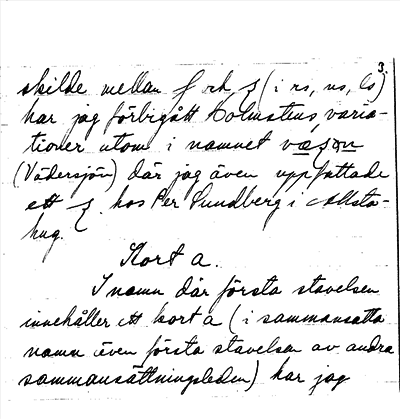 3.
skilde mellan ʃ och ȿ (i rs, ns, ls)
har jag förbigått Holmstens varia-
tioner utom i namnet
(Vädersjön) där jag även uppfattade
ett hos Per Sundberg i Allsta-
hug.
Kort a.
I namn där första stavelsen
innehåller ett kort a (i sammansatta
namn även första stavelsen av andra
sammansättningsleden) har jag